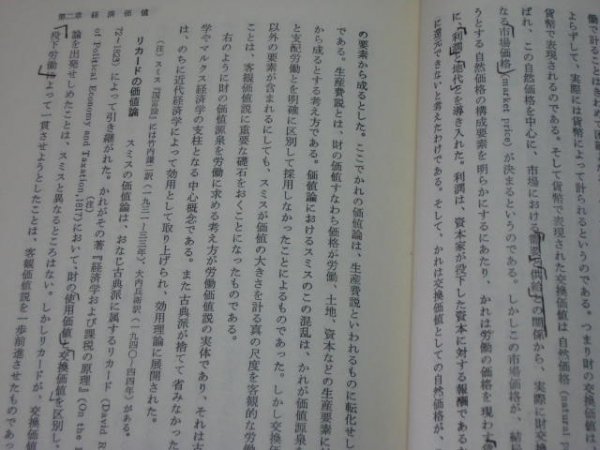 量で計ることはきわめて困
よらずして、実際には貨幣によって計られるからである。つまり財の交換価
貨幣で表現されるのである。そして貨幣で表現された交換価値は自然価格（natural p
ばれ、この自然価格を中心に、市場における需要と供給との関係から、実際に財の交換
なる市場価格（market price）が決まるというのである。しかしこの市場価格が、結局
うとする自然価格の構成要素を明らかにするにあたり、かれは労働の価格を現わす
に、利潤と地代とを導き入れた。利潤は、資本家が投下した資本に対する報酬である
に還元できないと考えたわけである。そして、かれは交換価値としての自然価格が、
の要素から成るとした。ここでかれの価値論は、生産費説といわれるものに転化せし
である。生産費説とは、財の価値すなわち価格が労働、土地、資本などの生産要素に
から成るとする考え方である。価値論におけるスミスのこの混乱は、かれが価値源泉
と支配労働とを明確に区別して採用しなかったことによるものであった。しかし交換価
以外の要素が含まれるにしても、スミスが価値の大きさを計る真の尺度を客観的な労働
ことは、客観価値説に重要な礎石をおくことになったものである。
右のように財の価値源泉を労働に求める考え方が労働価値説の実体であり、それは古
学やマルクス経済学の支柱となる中心概念である。また古典派が捨てて省みなかった
は、のちに近代経済学によって効用として取り上げられ、効用理論に展開された。
（注）スミス『国富論』には竹内謙二訳（一九三一―三三年）、大内兵衛訳（一九四〇―四四年）がある。
リカードの価値論
スミスの価値論は、おなじ古典派に属するリカード（David R
72―1823）によって引き継がれた。かれがその著『経済学および課税の原理』（On the
of Political Economy and Taxation, 1817）において、財の使用価値と交換価値を区別し、
（注）
論を出発せしめたことは、スミスと異なるところはない。しかしリカードが、交換価値
投下労働によって一貫させようとしたことは、客観価値説を一歩前進させたものであっ
第二章 経済価値